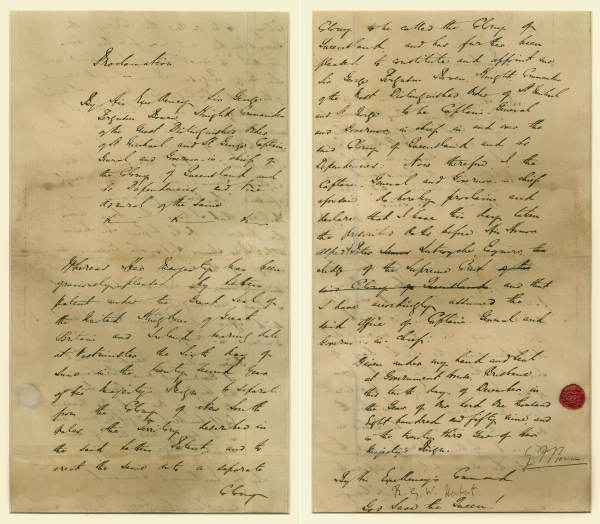 Proclamation
By His Excellency Sir George
Ferguson Bowen Knight Commander
of the Most Distinguished Order
of St Michael and St George Captain
General and Governor in chief of
the Colony of Queensland and
its Dependencies and Vice
Admiral of the same
Whereas Her Majesty has been
graciously pleased by Letters
Patent under the Great Seal of
the United Kingdom of Great
Britain and Ireland bearing date
at Westminster the Sixth day of
June in the twenty second year
of Her Majesty's Reign to separate
from the Colony of New South
Wales the Territory described in
the said Letters Patent and to
erect the same into a separate
Colony
Colony to be called the Colony of
Queensland and has further been
pleased to constitute and appoint me
Sir George Ferguson Bowen Knight Commander
of the Most Distinguished Order of St Michael
and St George to be Captain General
and Governor in chief in and over the
said Colony of Queensland and its
Dependencies. Now therefore I the
Captain General and Governor in chief
aforesaid do hereby proclaim and
declare that I have this day taken
the prescribed Oaths before His Honor
Alfred James Peter Lutwyche Esquire the
Judge of the Supreme Court
said Colony of Queensland and that
I have accordingly assumed the
said Office of Captain General and
Governor in chief.
Given under my hand and Seal
at Government House, Brisbane
this tenth day of December in
the Year of Our Lord One thousand
Eight hundred and fifty nine and
in the twenty third Year of Her
Majesty's Reign.
G F Bowen
By His Excellency's Command
R. G. W. Herbert
God Save the Queen!